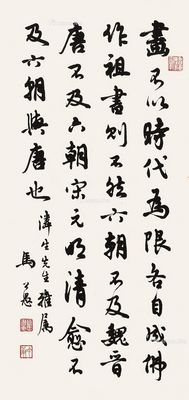 畫可以時代為限各自成佛
作祖書則不然六朝不及魏晉
唐不及六朝宋元明清愈不
及六朝與唐也
濤生先生雅屬
馬公愚